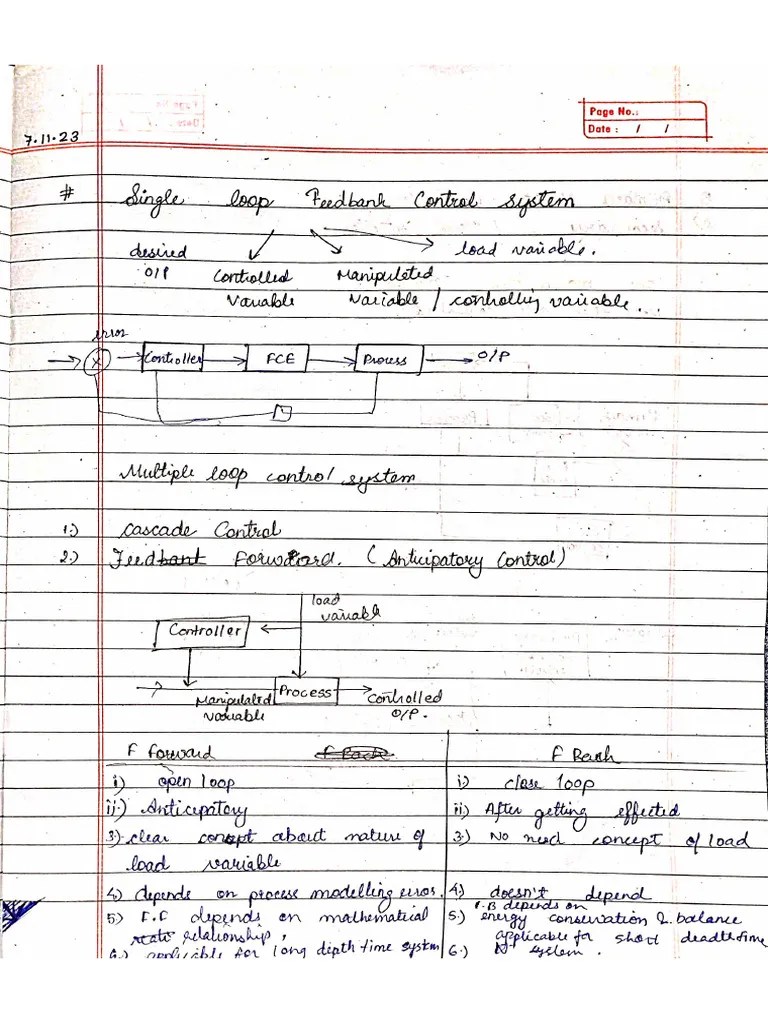 Page No.:
Date : / /
7.11.23
# Single loop Feedbank Control system
desired load variable.
O/P Controlled Manipulated
Variable Variable / controlling variable...
error
Controller FCE Process O/P
Multiple loop control system
1.) Cascade Control
2.) Feed forward. (Anticipatory Control)
load
variable
Controller
Process Controlled
Manipulated O/P.
variable
F forward F Back
i) open loop i) close loop
ii.) Anticipatory ii) After getting effected
3.) clear concept about nature of 3.) No need concept of load
load variable
4.) depends on process modelling error. 4.) doesn't depend
5) F.F depends on mathematical 5.) F.B depends on energy conservation & balance
relationship, applicable for short deadtime
6.) applicable for long depth time system 6.) system.